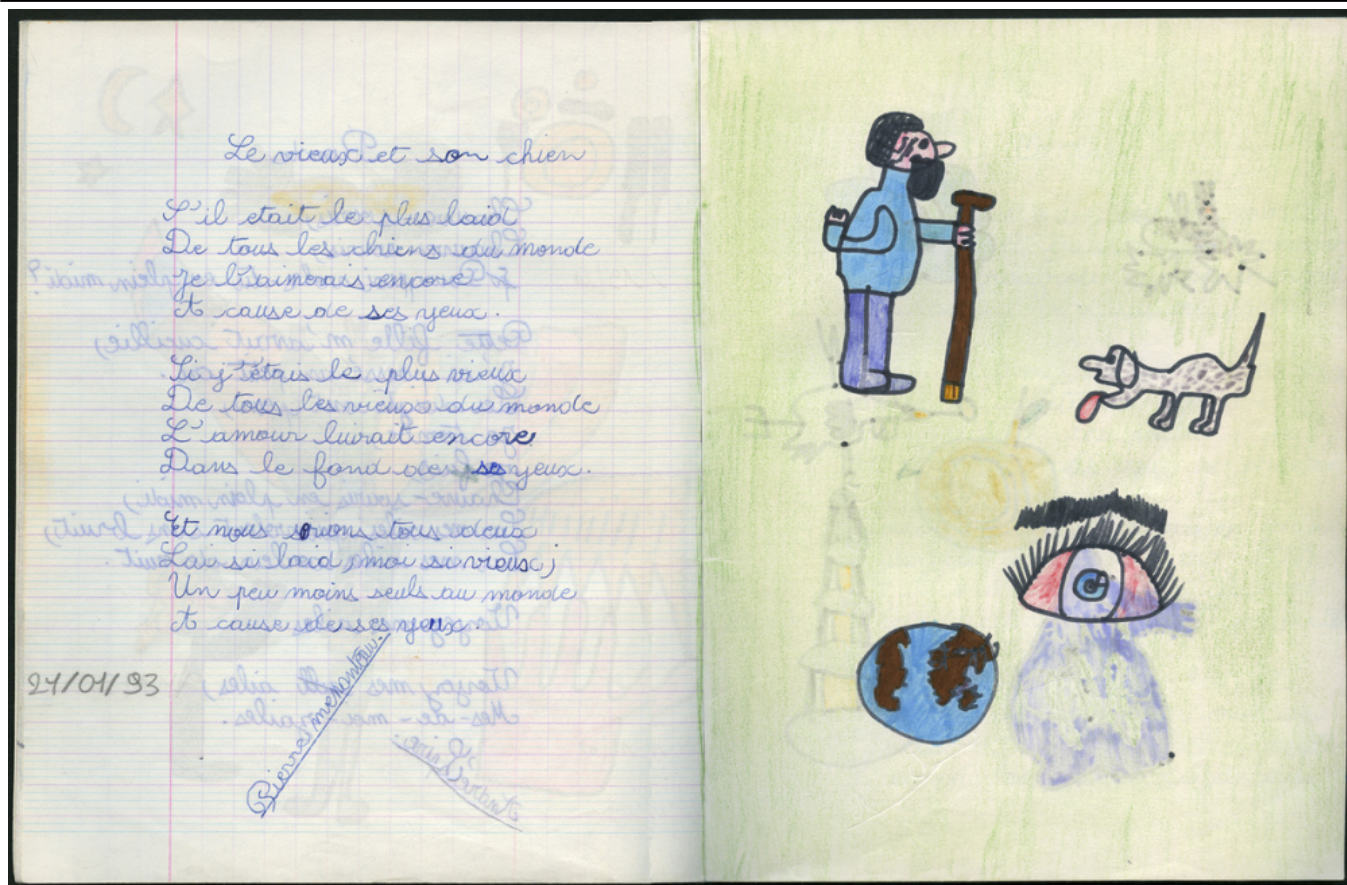 Le vieux et son chien
S'il etait le plus laid
De tous les chiens du monde
Je l'aimerais encore
A cause de ses yeux.
Si j'étais le plus vieux
De tous les vieux du monde
L'amour luirait encore
Dans le fond de ses yeux.
Et nous serions tous deux
Lui si laid, moi si vieux,
Un peu moins seuls au monde
A cause de ses yeux.
Pierre menanteau.
21/01/93